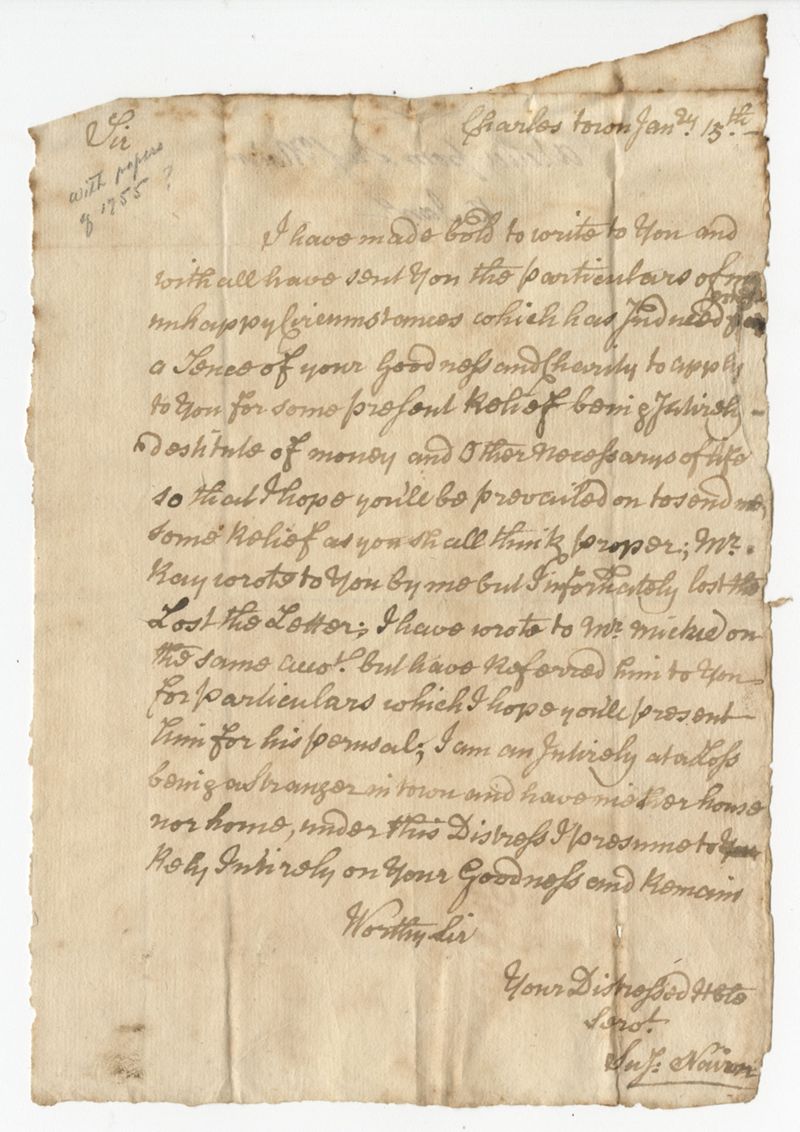 Charles town Jan.ry 15.th
Sir
with papers
of 1755 ?
I have made bold to write to You and
withall have sent You the particulars of my
unhappy Circumstances which has Induced
a Sence of your Goodness and Charity to apply
to You for some present Relief being Intirely
Destitute of money and Other necessarys of life
so that I hope you'll be prevailed on to send me,
some Relief as you shall think proper; Mr.
Kay wrote to You by me but Infortunately lost the
Lost the Letter; I have wrote to Mr. Mickie on
the same acco.t but have Referred him to You
for particulars which I hope you'll present
him for his perusal; I am an Intirely at a Loss
being a stranger in town and have niether house
nor home, under this Distress I presume to
Rely Intirely on Your Goodness and Remain
Worthy Sir
Your Distressed Hble
Serv.t